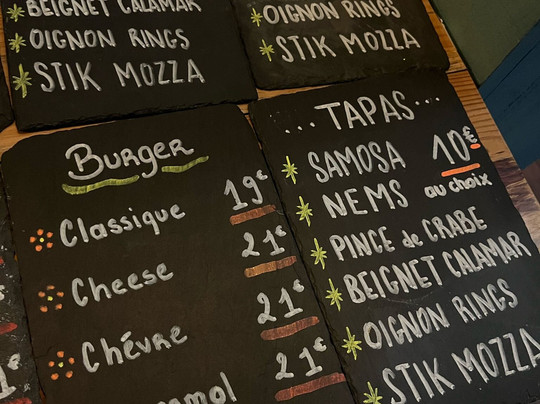 BEIGNET CALAMAR
OIGNON RINGS
STIK MOZZA
OIGNON RINGS
STIK MOZZA
Burger
Classique 19€
Cheese 21€
Chévre 21€
21€
...TAPAS...
SAMOSA 10€
NEMS au choix
PINCE de CRABE
BEIGNET CALAMAR
OIGNON RINGS
STIK MOZZA